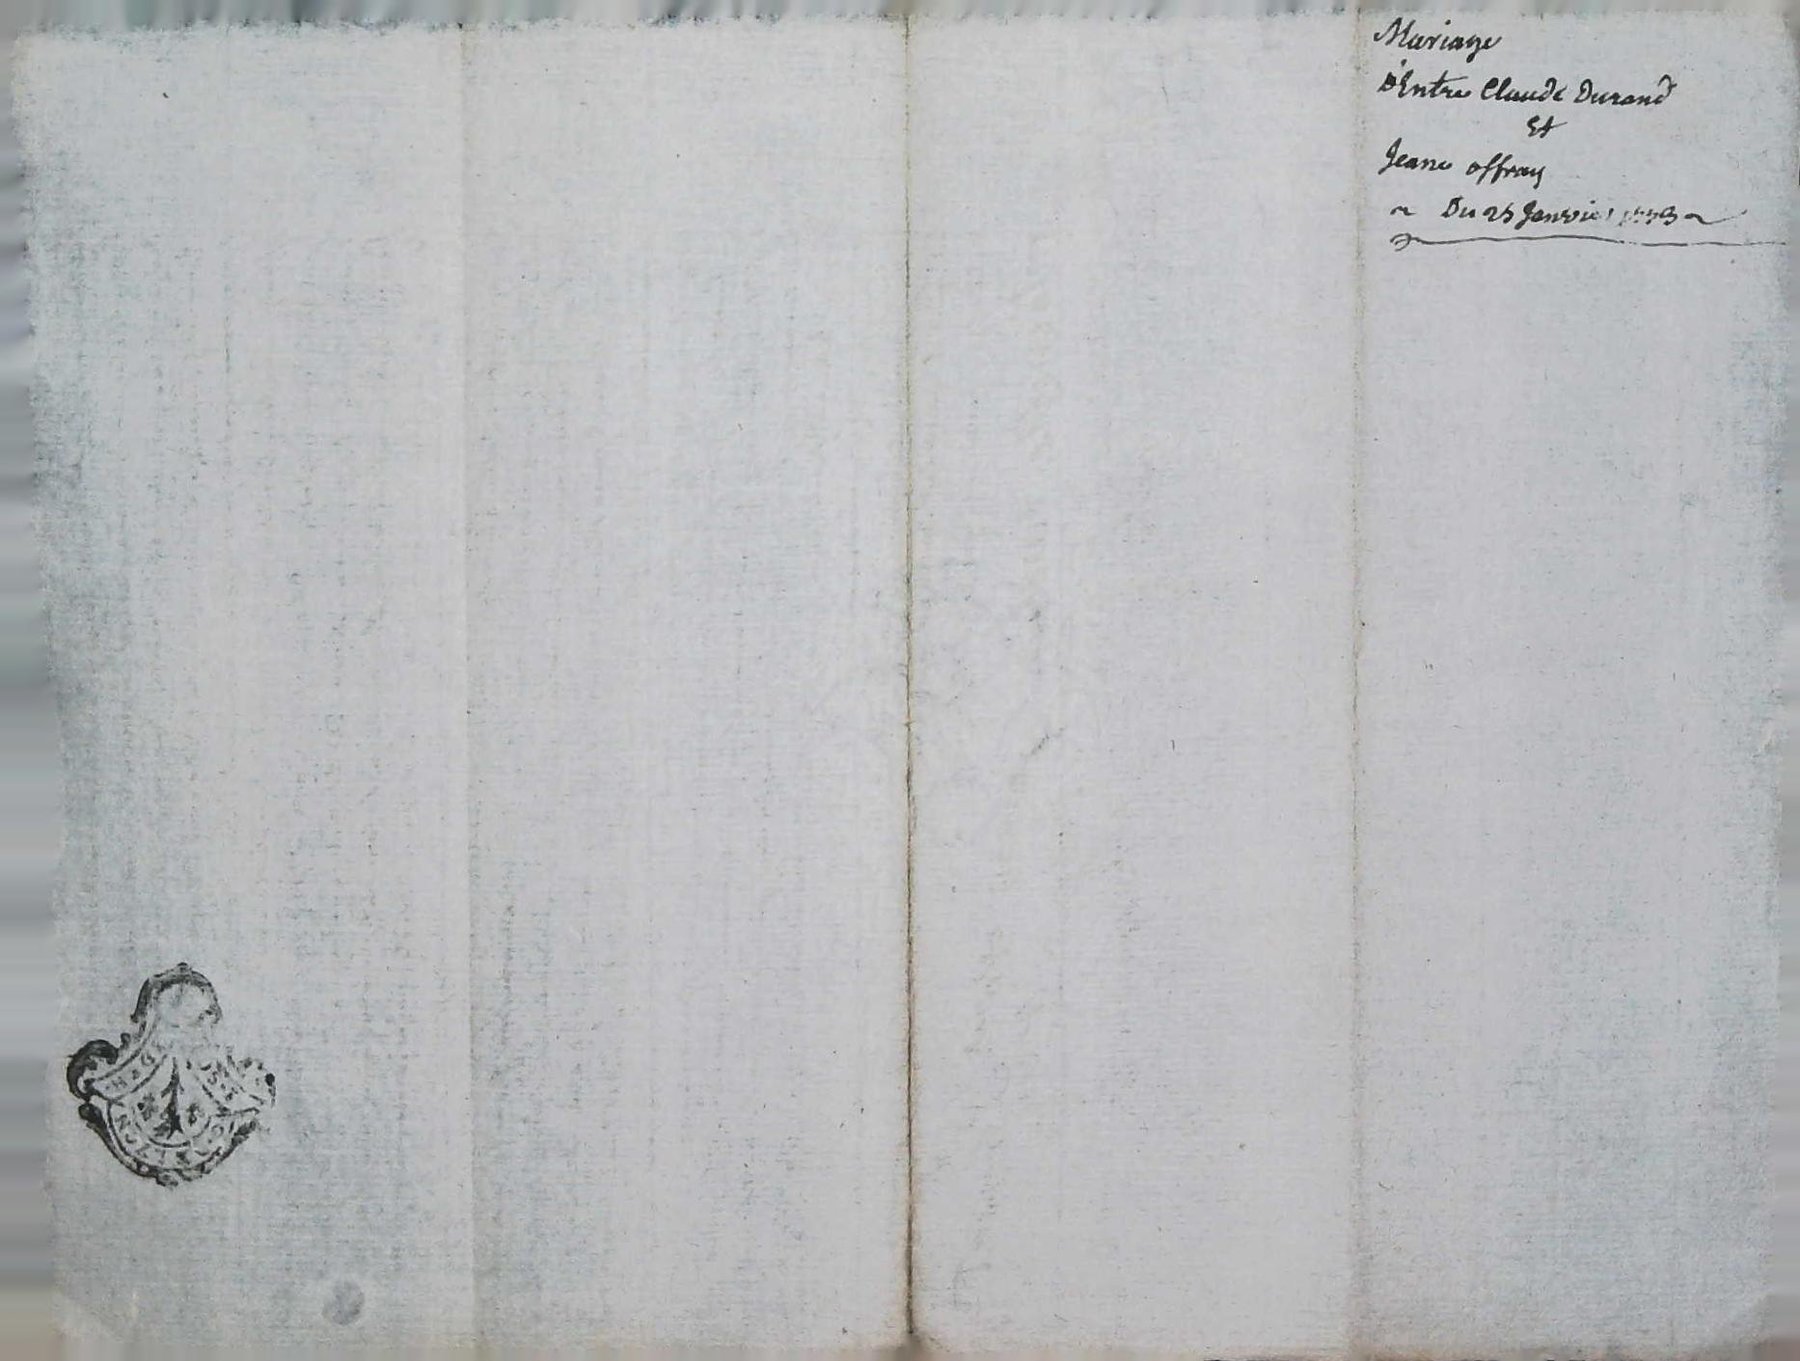 Mariage
D'Entre Claude Durand
Et
Jeane offray
Du 25 Janvier